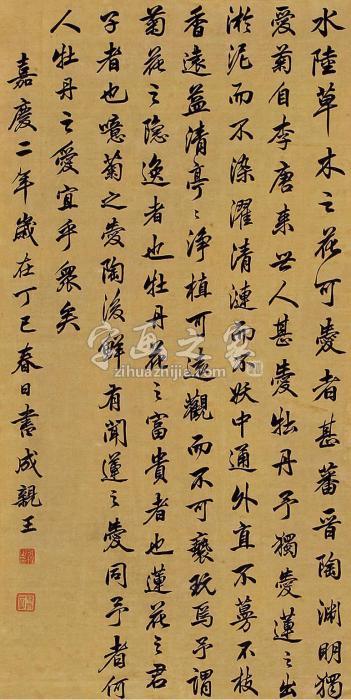 水陸草木之花可愛者甚蕃晉陶淵明獨
愛菊自李唐来世人甚愛牡丹予獨愛蓮之出
淤泥而不染濯清漣而不妖中通外直不蔓不枝
香遠益清亭〻淨植可遠觀而不可褻玩焉予謂
菊花之隐逸者也牡丹花之富貴者也蓮花之君
子者也噫菊之愛陶後鮮有聞蓮之愛同予者何
人牡丹之愛宜乎衆矣
嘉慶二年歲在丁巳春日書成親王
字画之家
zihuazhijia.com